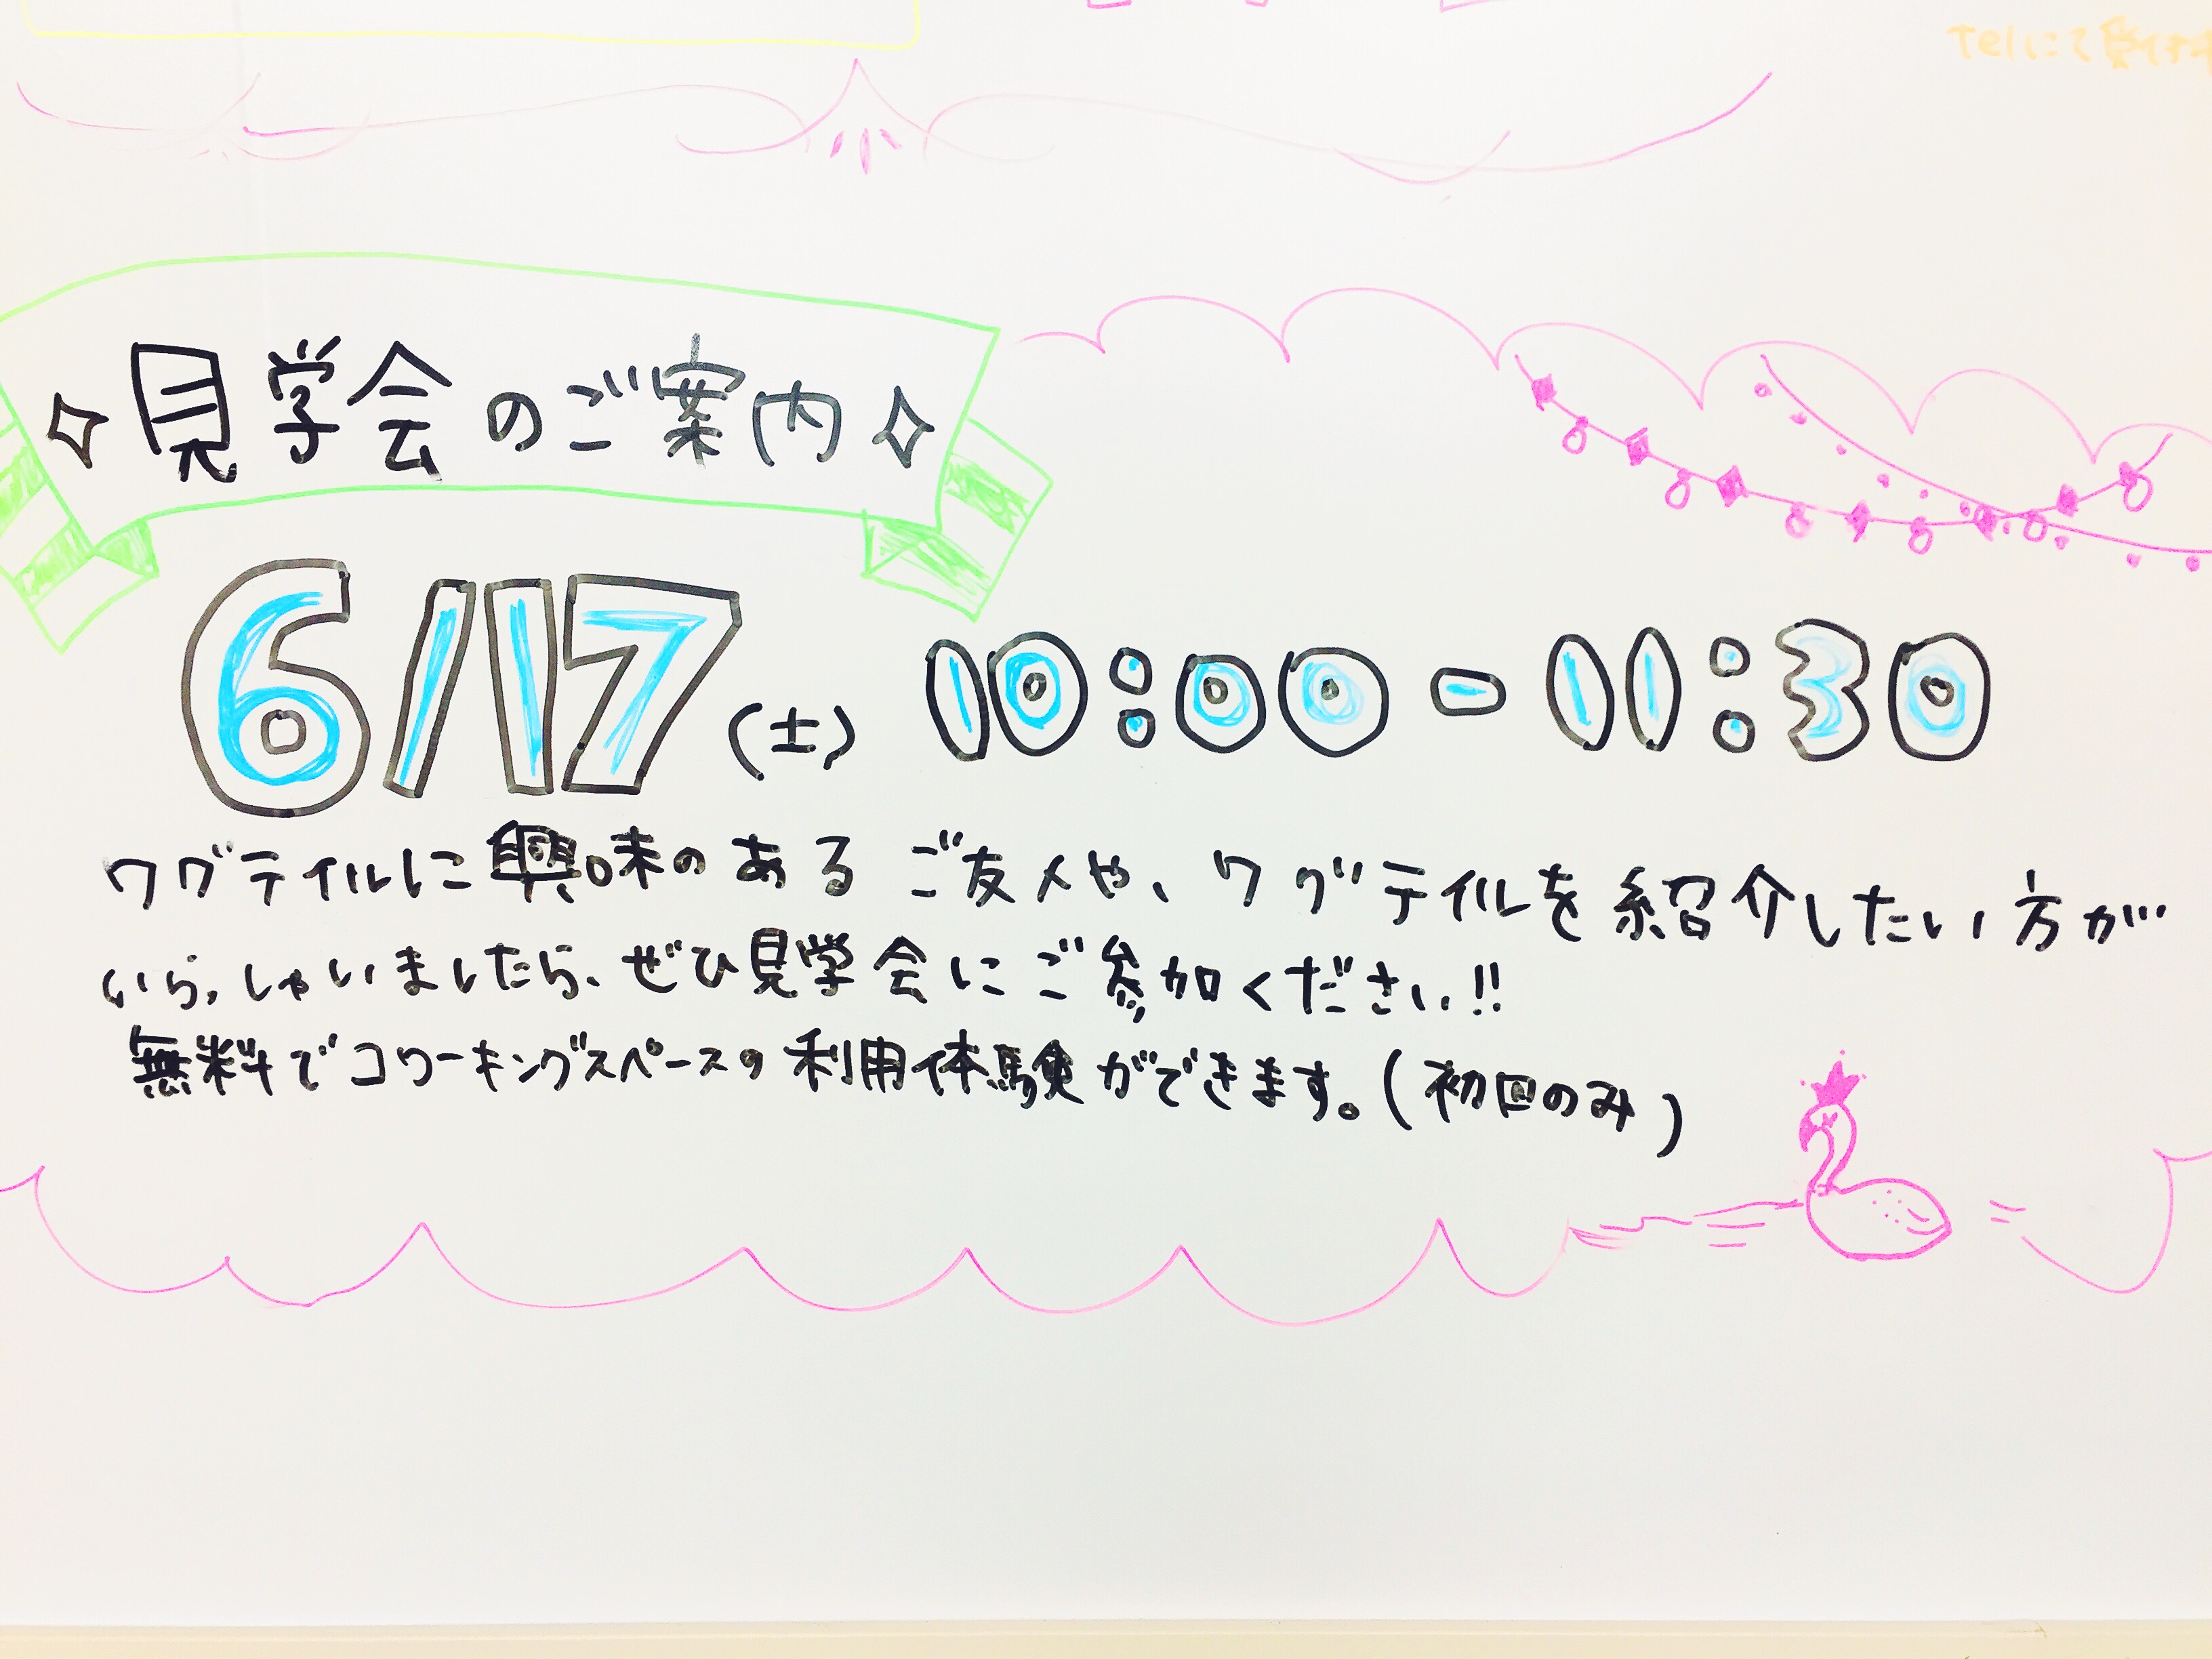 Telにて受付
✧見学会のご案内✧
6/17(土) 10:00-11:30
ワグテイルに興味のあるご友人や、ワグテイルを紹介したい方が
いらっしゃいましたら、ぜひ見学会にご参加ください!!
無料でコワーキングスペースの利用体験ができます。(初回のみ)